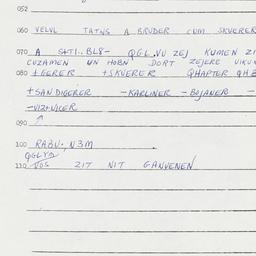 052
060 VELVL TATNS A BRUDER CUM SKVERER
070 A SHTI.. BL8- QGL, VU ZEJ KUMEN ZI
CUZAMEN UN HOBN DORT ZEJERE VIKU
080 +GERER +SKVERER QHAPTER QHB
+SANDIGERER -KARLINER -BOJANER -
-VIZHNICER
090
100 RABU., N3M
QGLYD
110 VOS ZIT NIT GANVENEN